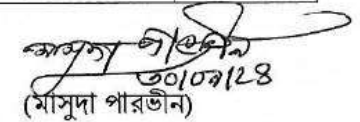 মাসুদা পারভীন
৩০/০৭/২৪
(মাসুদা পারভীন)